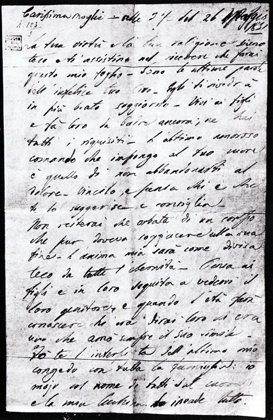 Carissima moglie - alle 5½ del 26 Maggio 1831
La tua virtù e la tua religione sieno
teco e ti assistino nel ricevere che farai
questo mio foglio - Sono le ultime parole
dell'infelice tuo Ciro. Egli ti rivedrà
in più beato soggiorno - Vivi ai figli
e fa loro da padre ancora; ne hai
tutti i requisiti - L'ultimo amoroso
comando che impongo al tuo cuore
è quello di non abbandonarti al
dolore - Vincilo e pensa chi è che
te lo suggerisce e consiglia -
Non resterai che orbata di un corpo
che pur doveva soggiacere alla sua
fine - L'anima mia sarà
teco per tutta l'eternità - Pensa ai
figli e in loro seguita a vedere il
loro genitore, e quando
conoscere chi era dirai loro ch'era
uno che amò sempre il suo simile
Fo te l'interprete dell'ultimo mio
congedo con tutta la famiglia; io
mojo col nome di tutti nel cuore
e la mia